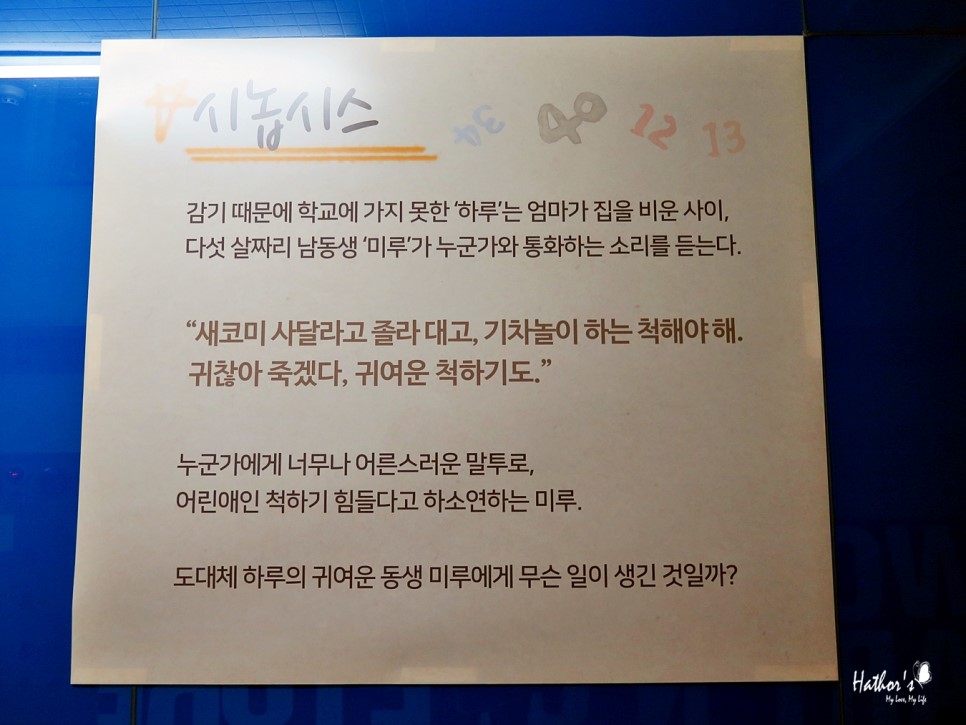 #시놉시스 34 40 12 13
감기 때문에 학교에 가지 못한 '하루'는 엄마가 집을 비운 사이,
다섯 살짜리 남동생 '미루'가 누군가와 통화하는 소리를 듣는다.
“새코미 사달라고 졸라 대고, 기차놀이 하는 척해야 해.
귀찮아 죽겠다, 귀여운 척하기도.”
누군가에게 너무나 어른스러운 말투로,
어린애인 척하기 힘들다고 하소연하는 미루.
도대체 하루의 귀여운 동생 미루에게 무슨 일이 생긴 것일까?
Hathor's
My Love, My Life